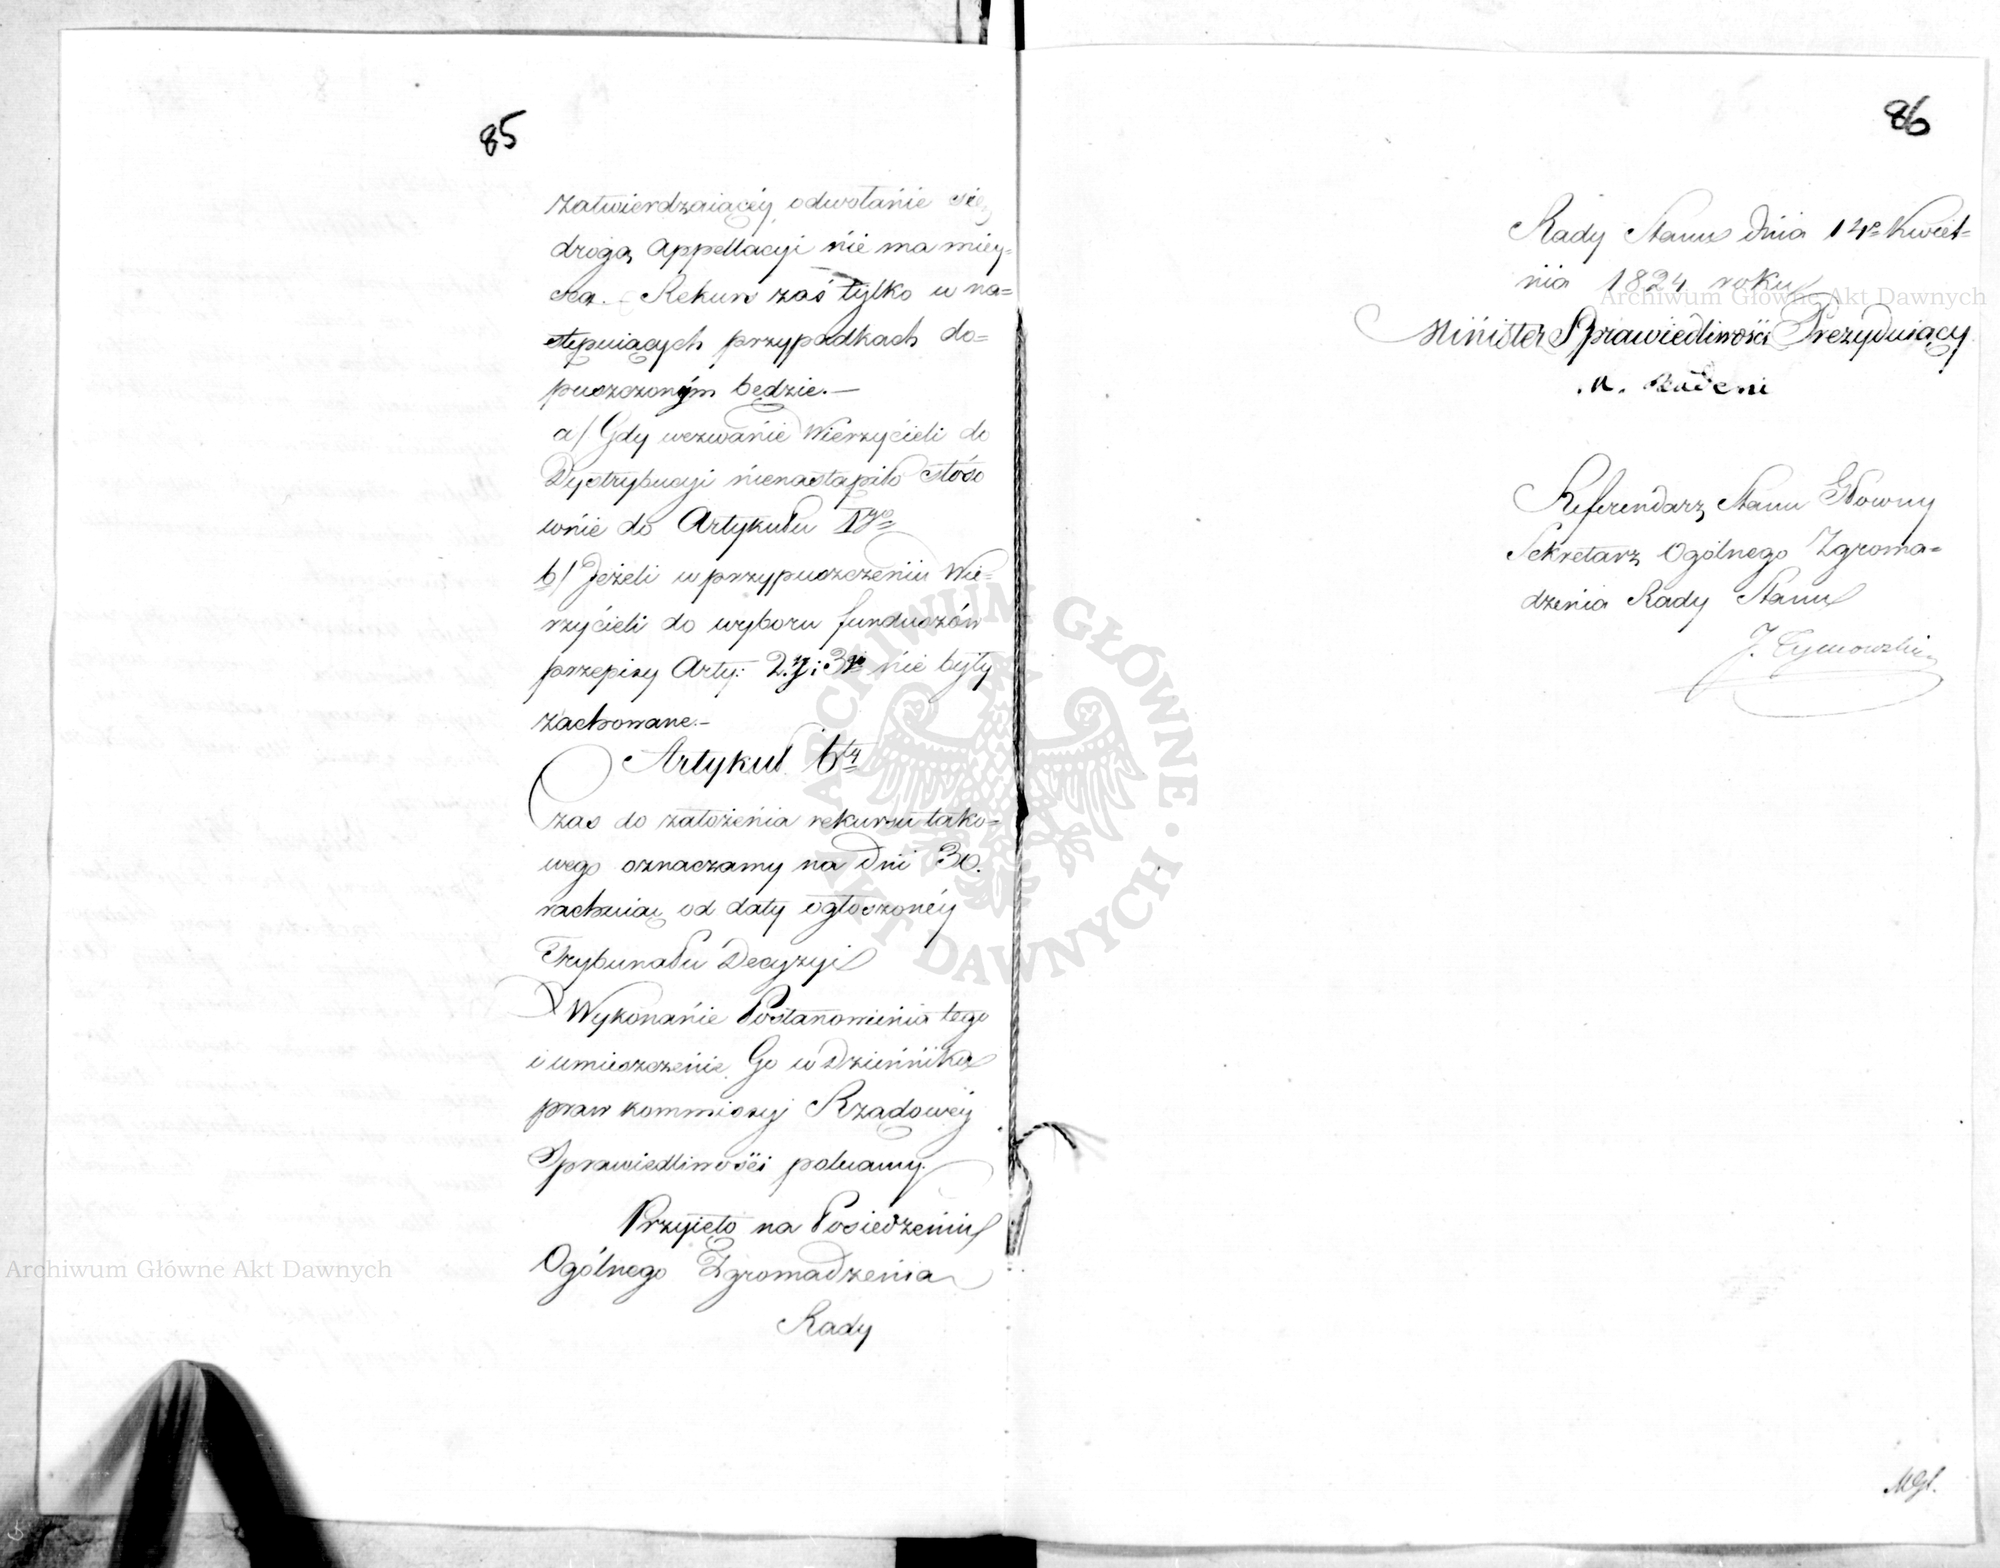 85
zatwierdzaiącéy odwołánie się
drogą Appellacyi nie ma miey-
sca. – Rekurs zaś tylko w na=
stępuiących przypadkach do=
puszczonym będzie.–
a/ Gdy wezwánie Wierzycieli do
Dystrybucyi nienastąpiło stóso
wnie do Artykułu 1go
b/ Jeżeli w przypuszczeniu Wie=
rzycieli do wyboru funduszów
przepisy Arty: 2.y i 3go nie były
zachowane.–
Artykuł 6ty
Czas do założenia rekursu tako=
wego oznaczamy na dni 30.
rachuiąc od daty ogłoszonéy
Trybunału Decyzyi
Wykonánie Postanowienia tego
i umieszczenie Go w Dzienniku
praw kommissyi Rządowéy
Sprawiedliwości polecamy.
Przyięto na Posiedzeniu
Ogólnego Zgromadzenia
Rady
86
Rady Stanu dnia 14o Kwiet=
nia 1824 roku
Minister Sprawiedliwości Prezyduiący
Badeni
Referendarz Stanu Główny
Sekretarz Ogólnego Zgroma=
dzenia Rady Stanu
J. Tymowski
Archiwum Główne Akt Dawnych
Archiwum Główne Akt Dawnych
ARCHIWUM GŁÓWNE AKT DAWNYCH